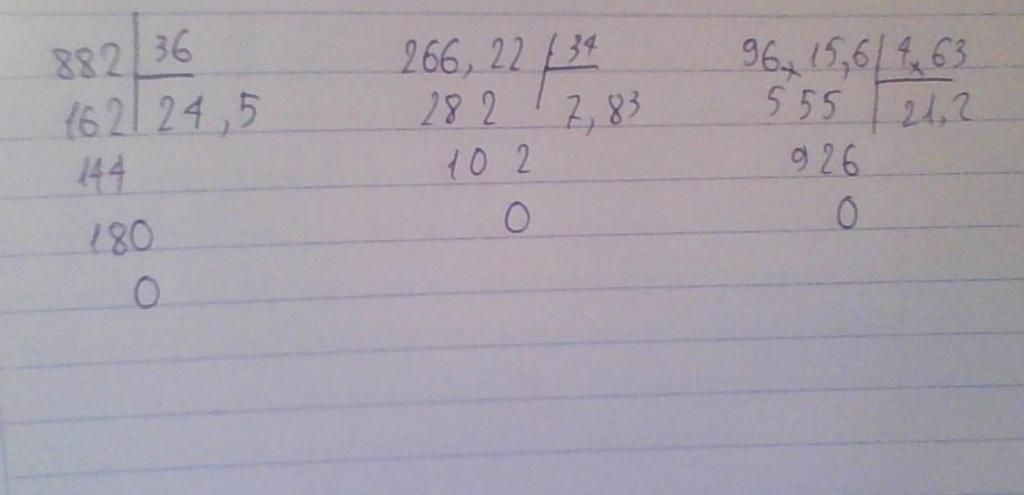 882 36
162 24,5
144
180
0
266,22 34
282 7,83
102
0
96,15,6 4,63
555 21,2
926
0